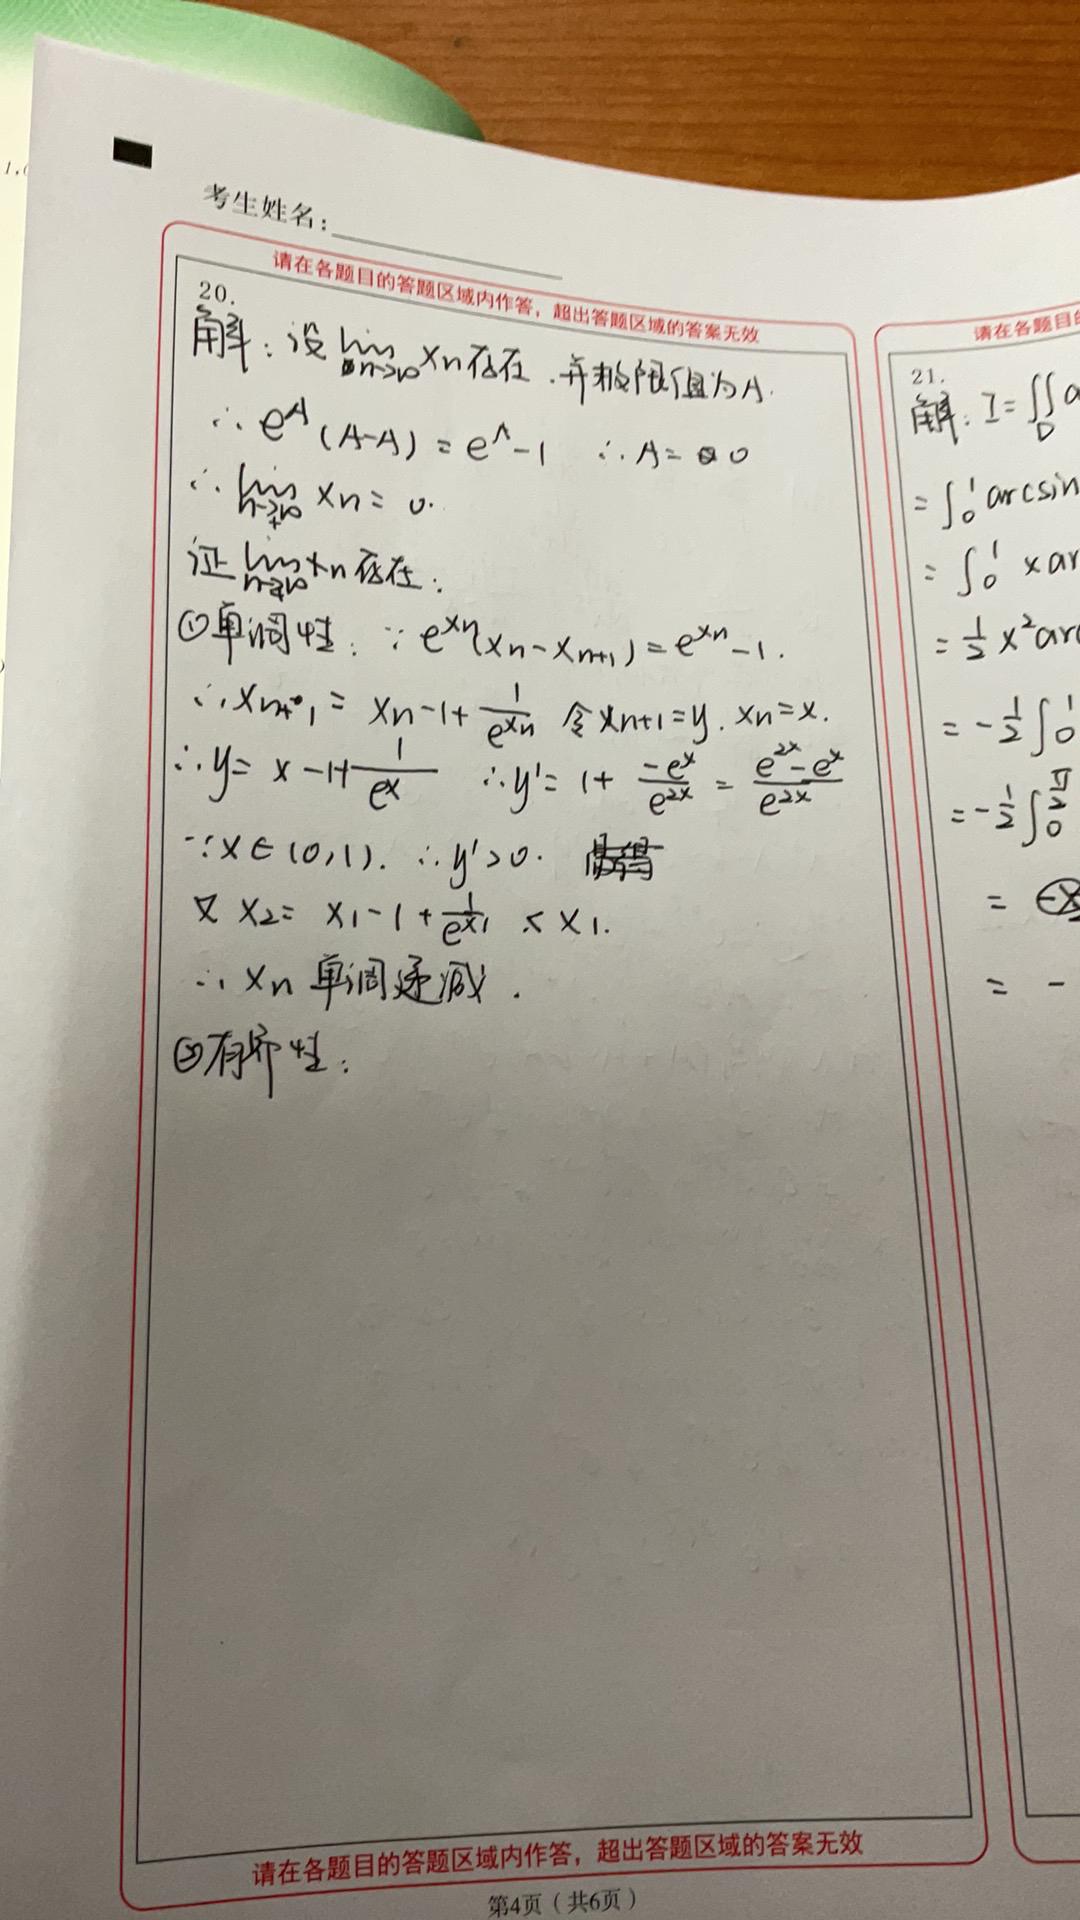 1,0
考生姓名：
请在各题目的答题区域内作答，超出答题区域的答案无效
20.
解：设 lim n→∞ xn 存在．并极限值为A.
∴ e^A (A-A) = e^A - 1 ∴ A = 0
∴ lim n→∞ xn = 0.
证 lim n→∞ xn 存在：
①单调性：∵ e^xn (xn - xn+1) = e^xn - 1.
∴ xn+1 = xn - 1 + 1/e^xn 令 xn+1 = y. xn = x.
∴ y = x - 1 + 1/e^x ∴ y' = 1 + -e^x/e^2x = e^2x - e^x/e^2x
∵ x ∈ (0,1). ∴ y' > 0.
又 x2 = x1 - 1 + 1/e^x1 < x1.
∴ xn 单调递减．
②有界性：
请在各题目的答题区域内作答，超出答题区域的答案无效
第4页（共6页）
请在各题目的
21.
解：I = ∬D a
= ∫0^1 arcsin
= ∫0^1 x ar
= 1/2 x² arc
= -1/2 ∫0^1
= -1/2 ∫0^π/2
=
= -